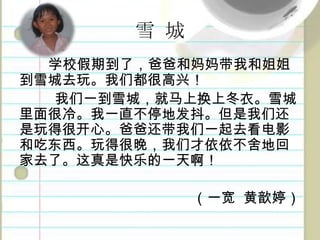 雪 城
学校假期到了，爸爸和妈妈带我和姐姐
到雪城去玩。我们都很高兴！
我们一到雪城，就马上换上冬衣。雪城
里面很冷。我一直不停地发抖。但是我们还
是玩得很开心。爸爸还带我们一起去看电影
和吃东西。玩得很晚，我们才依依不舍地回
家去了。这真是快乐的一天啊！
（一宽 黄歆婷）